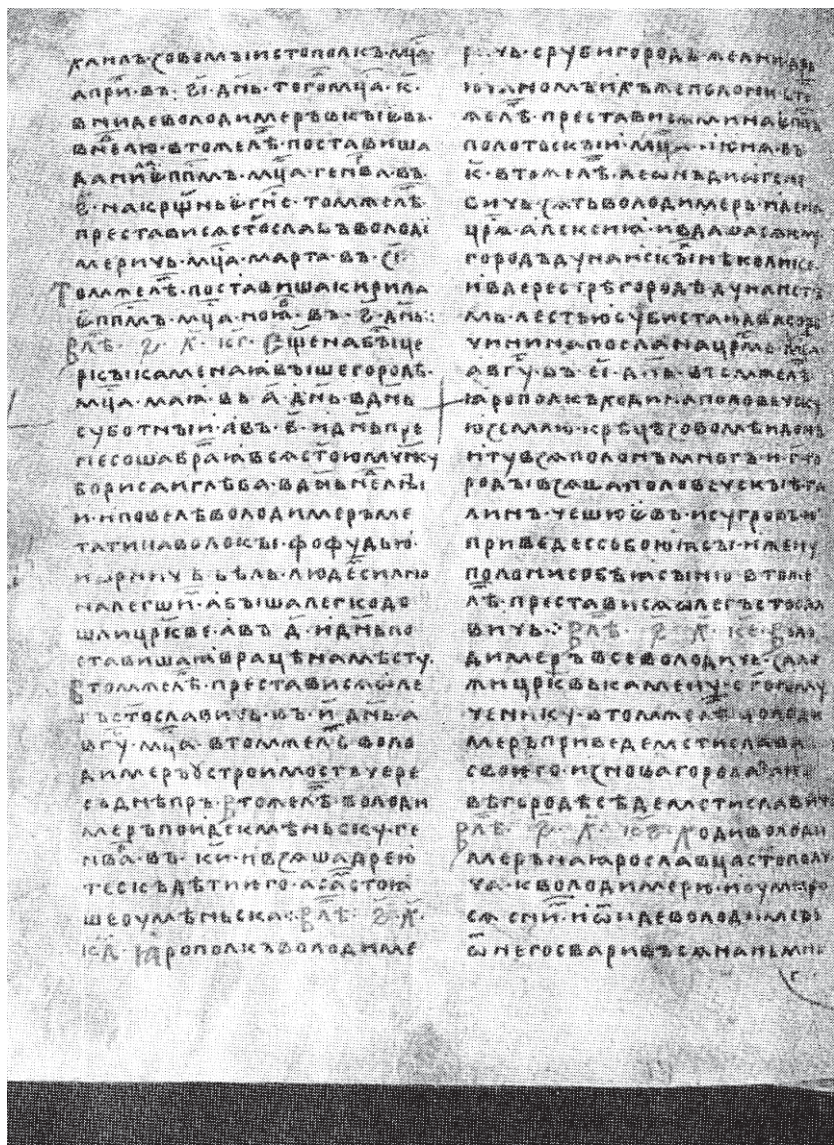 хаилъ ꙁовомꙑи стополкъ · мца ·
апри · въ · ꙅ҃і · днь · тогомца · к҃ ·
вниде володимеръ вкꙑѥвъ ·
внелю · втомже лѣ · поставиша
дани еппмъ · мца · генва · въ ·
ꙅ҃ · на крщньѥ гне · томже лѣ ·
преставис стославъ володі
меричь · мца · марта · въ · ꙅ҃і ·
Томже лѣ · поставиша кирила
еппмъ · мца · ноꙗ · въ · ꙅ҃ · днь ⁘
В лѣ · ҂ꙅ · х҃ · кг҃ · Вщенабꙑ це
ркꙑ каменаꙗ вꙑшегородѣ ·
мца · маꙗ · въ · а҃ · днь · вднь
суботнꙑи · авъ · в҃ · и днь пре
несоша браꙗ всꙗ стоюмчнку
бориса и глѣба · вднь нелнꙑ
и · и повелѣ володимеръ ме
тати паволокꙑ · фофудью ·
и орничѣ бѣль · людемъ силно
налегши · абꙑша легко до
шли цркве · авъ · д҃ · и днь по
ставиша ꙗ врацѣ на мѣсту ·
Втомже лѣ · преставис ѡле
гъ стославичь · въ · и҃ · днь · а
вгу · мца · втомже лѣ · воло
димеръ устрои мостъ чере
съ днѣпръ · Втоже лѣ · володи
меръ поиде к мѣньску · ге
нва · въ · к҃и · и вꙁаша дрею
тескъ дѣти ѥго · а сас стоꙗ
ше оу мѣньска ⁘ В лѣ · ҂ꙅ · х҃ ·
к҃д · Ꙗрополкъ володиме
ричь · сруби городъ желни
ꙗномъ ихъже полони
желѣ · преставис мина еппъ
полотьскꙑи · мца · июна · въ
к҃ · втоже лѣ · леѡнъ диогене
вичь · ꙁꙗть володимерь · иде на
црꙗ алексию · и вдаша
городъ дунаискꙑ нѣколико
и в дерестрѣ городѣ дунаистѣ
мь · лестью убиста и два соро
чинина послана црмь · мца
авгу · въ · е҃і · днь · въ семже лѣ ·
ꙗрополкъ ходи на половечску
ю ꙁемлю · крѣцѣ ꙁовомѣи донъ
и ту вꙁꙗша полонъ многъ · и г҃ го
родꙑ вꙁꙗша половечскꙑѣ га
линъ · чешюевъ · и сугровъ · и
приведе с собою ꙗсꙑ · и жену
полони собѣ ꙗсꙑню · втоже
лѣ · преставис ѡлегъ стосла
вичь ⁘ В лѣ · ҂ꙅ · х҃ · к҃е · Воло
димеръ всеволодичь · ꙁало
жи црквь камену · стому му
ченику · втомже лѣ · володи
меръ приведе мстислава
своѥго · иꙁ новагорода · и но
вѣгородѣ сѣде мстиславичь
В лѣ · ҂ꙅ · х҃ · к҃ꙅ · Ходи володи
меръ на ꙗрославца стополч
ча · к володимерю · и оумиро
сꙗ с ни · и ѿиде володимеръ
ѿ него сваривъ сꙗ нань мно
г